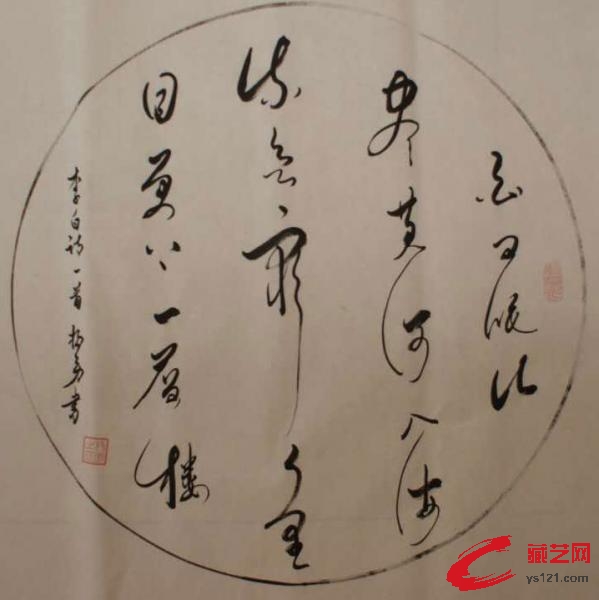 白日依山
尽黄河入海
流欲穷千里
目更上一层楼
李白诗一首 书
藏艺网
ys121.com